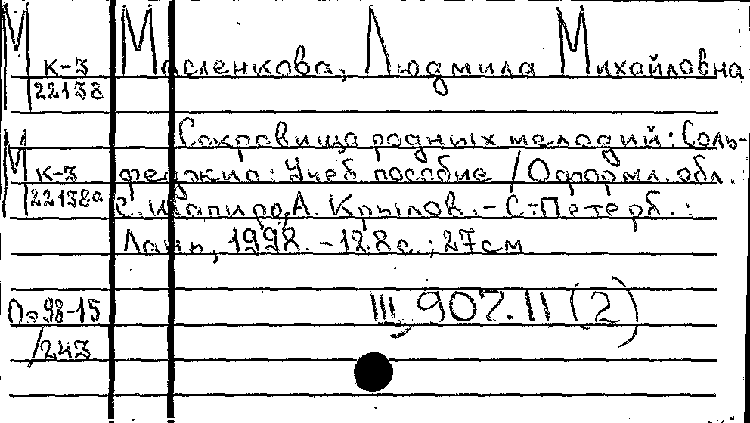 М Масленкова, Людмила Михайловна
к-3
22138
Сокровища родных мелодий: Соль-
М к-3 феджио: Учеб. пособие / Оформл. обл.
22138а С. Шапиро, А. Крылов. - С-Петерб.:
Лань, 1998. - 128 с.; 27 см
По 98-15 III, 907.II (2)
/243